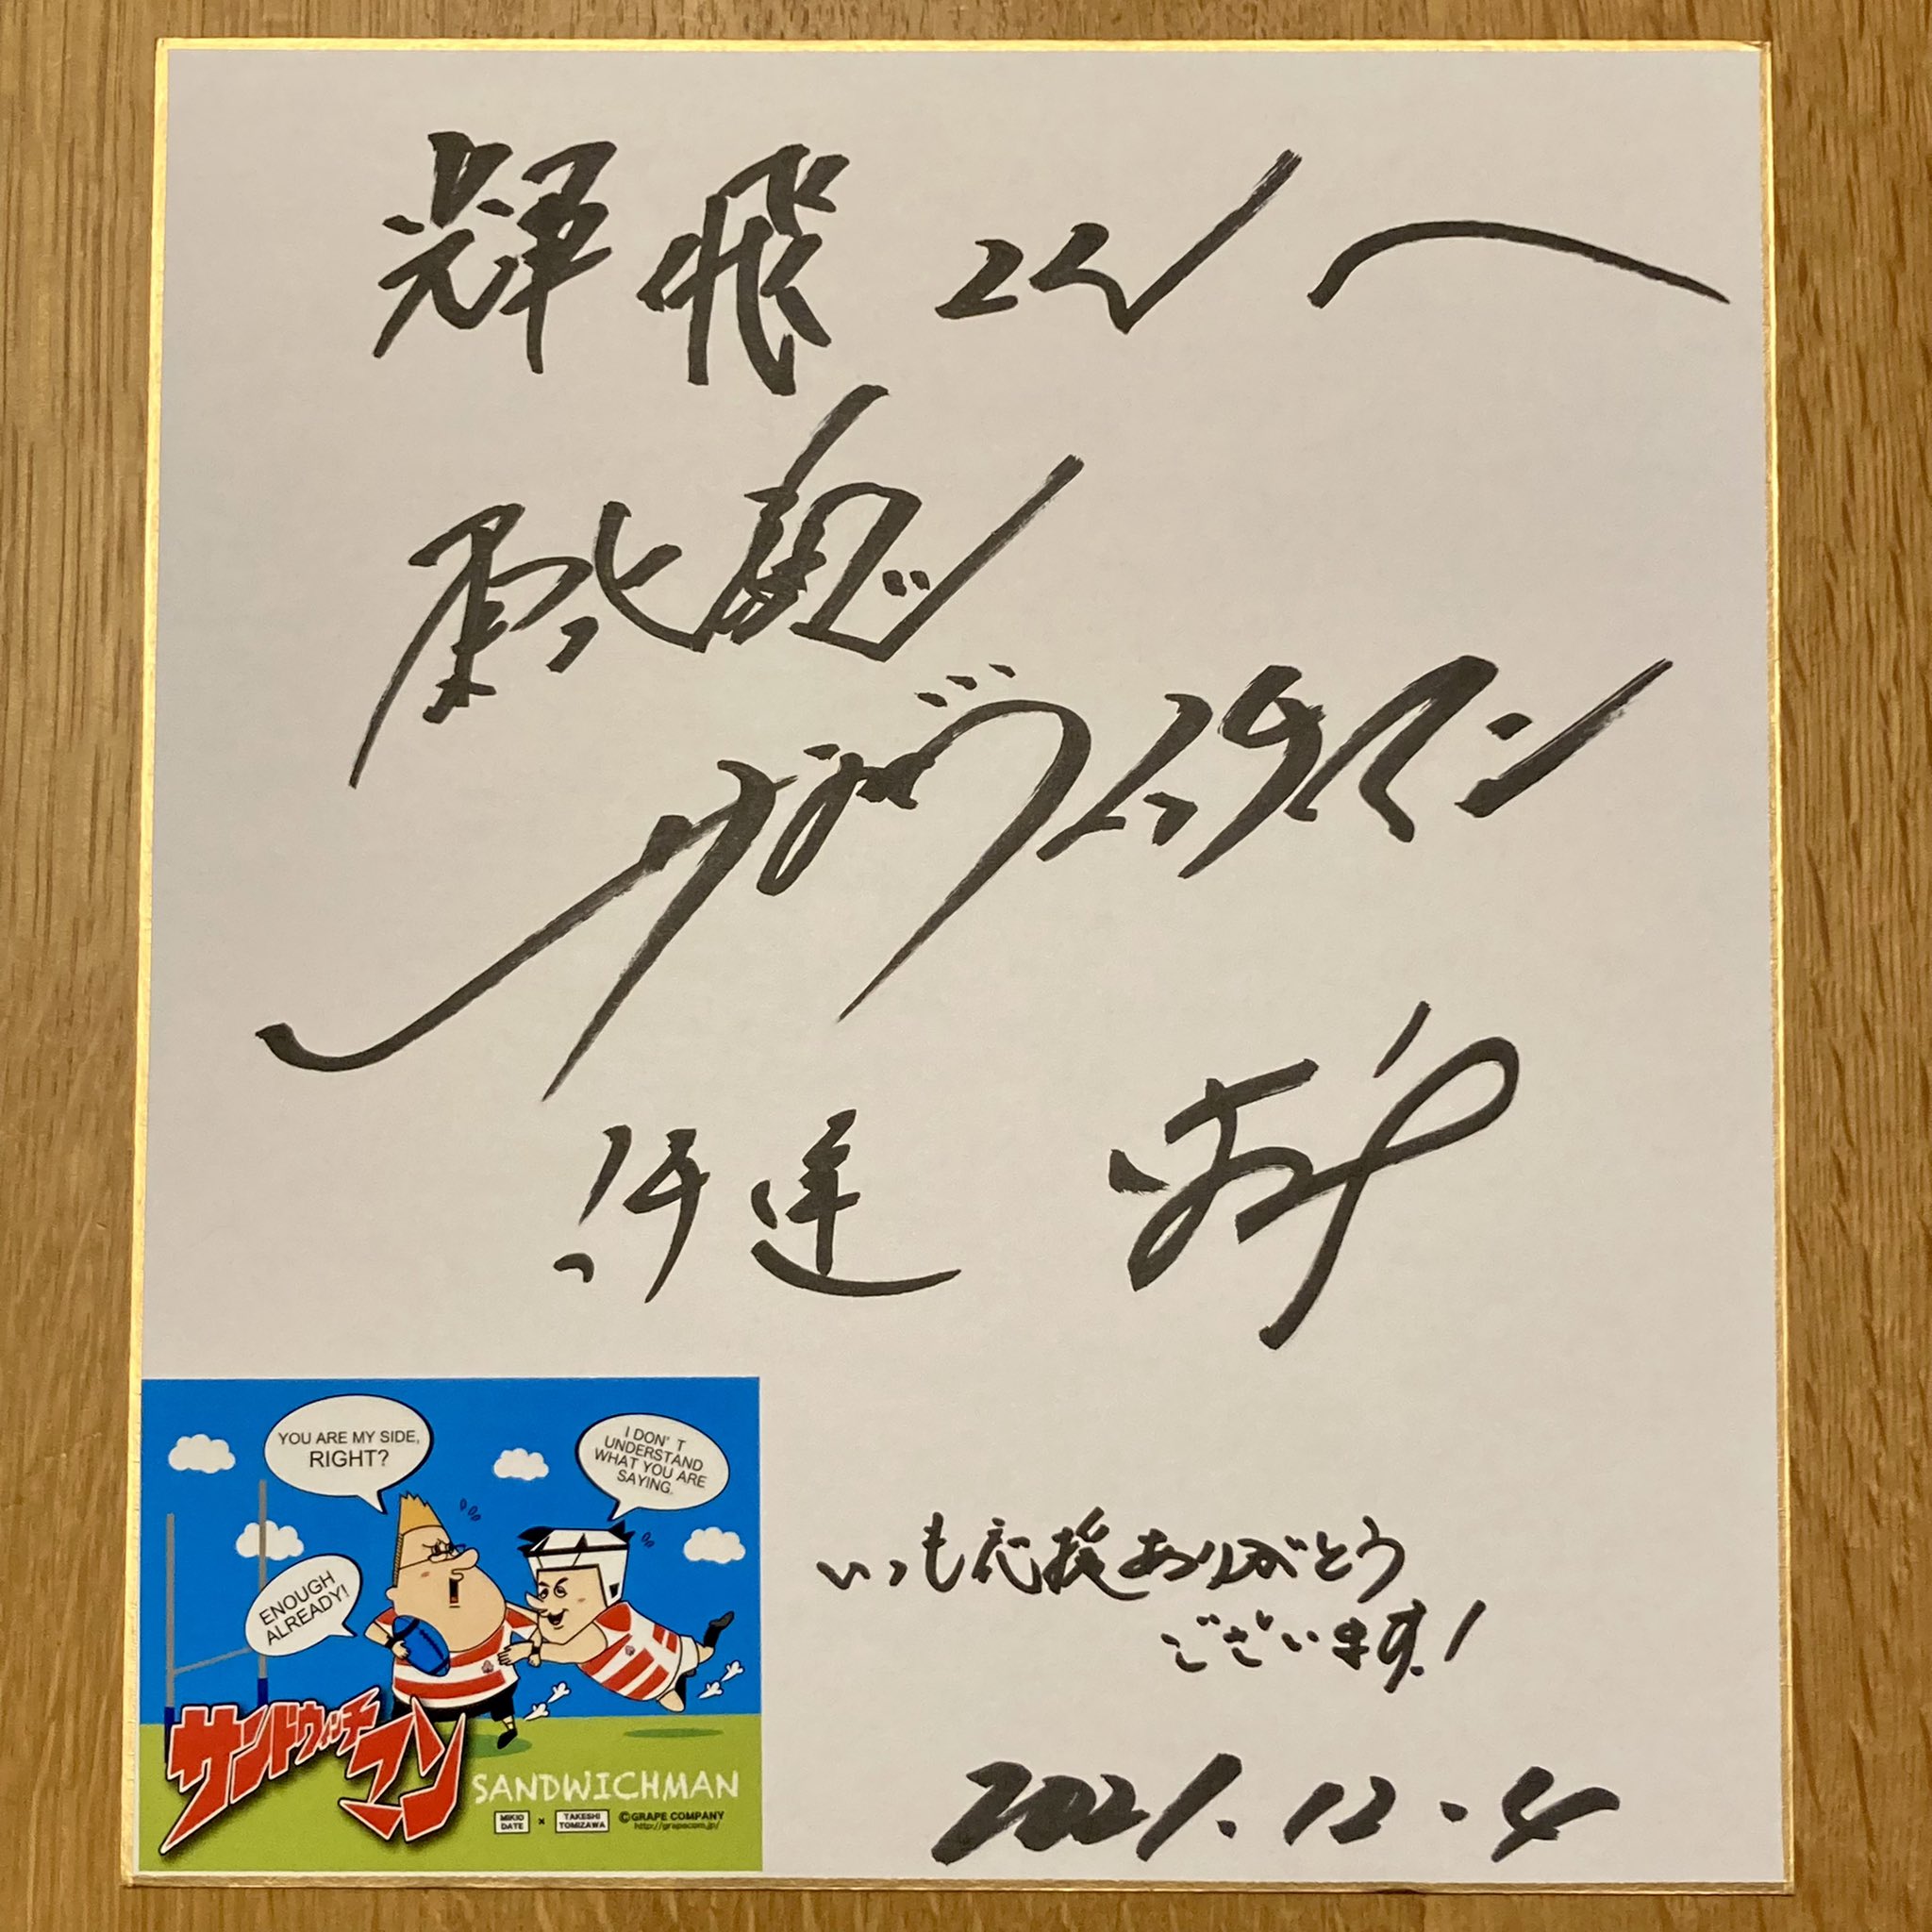 輝飛くんへ
東北魂
サンドウィッチマン
伊達
YOU ARE MY SIDE,
RIGHT?
I DON'T
UNDERSTAND
WHAT YOU ARE
SAYING.
ENOUGH
ALREADY!
サンドウィッチマン
SANDWICHMAN
MIKIO
DATE
×
TAKESHI
TOMIZAWA
©GRAPE COMPANY
http://grapecom.jp/
いつも応援ありがとう
ございます!
2021.12.4